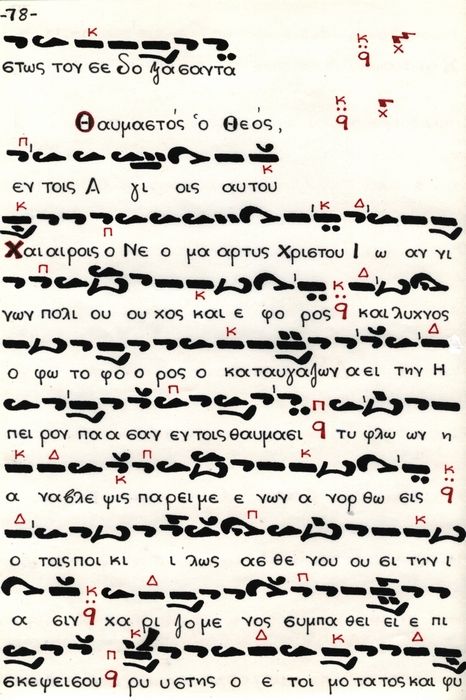 -78-
στως τον σε δο ξα σαντα
Θαυμαστός ὁ Θεός,
εν τοις Α γι οις αυτου
Χαι αι ροις ο Νε ο μα αρτυς Χριστου Ι ω αν νι
νων πολι ου ου χος και ε φο ρος q και λυχνος
ο φω το φο ο ρος ο καταυγαζων α ει την Η
πει ρον πα α σαν εν τοις θαυμασι q τυ φλω ων η
α ναβλε ψις παρει με ε νων α νορ θω σις q
ο τοις ποι κι ι λως ασ θε νου ου σι την ι
α σιν q χα ρι ζο με νος συμπα θει ει ε πι
σκεψει σου q ρυ υ στης ο ε τοι μο τατος και φυ